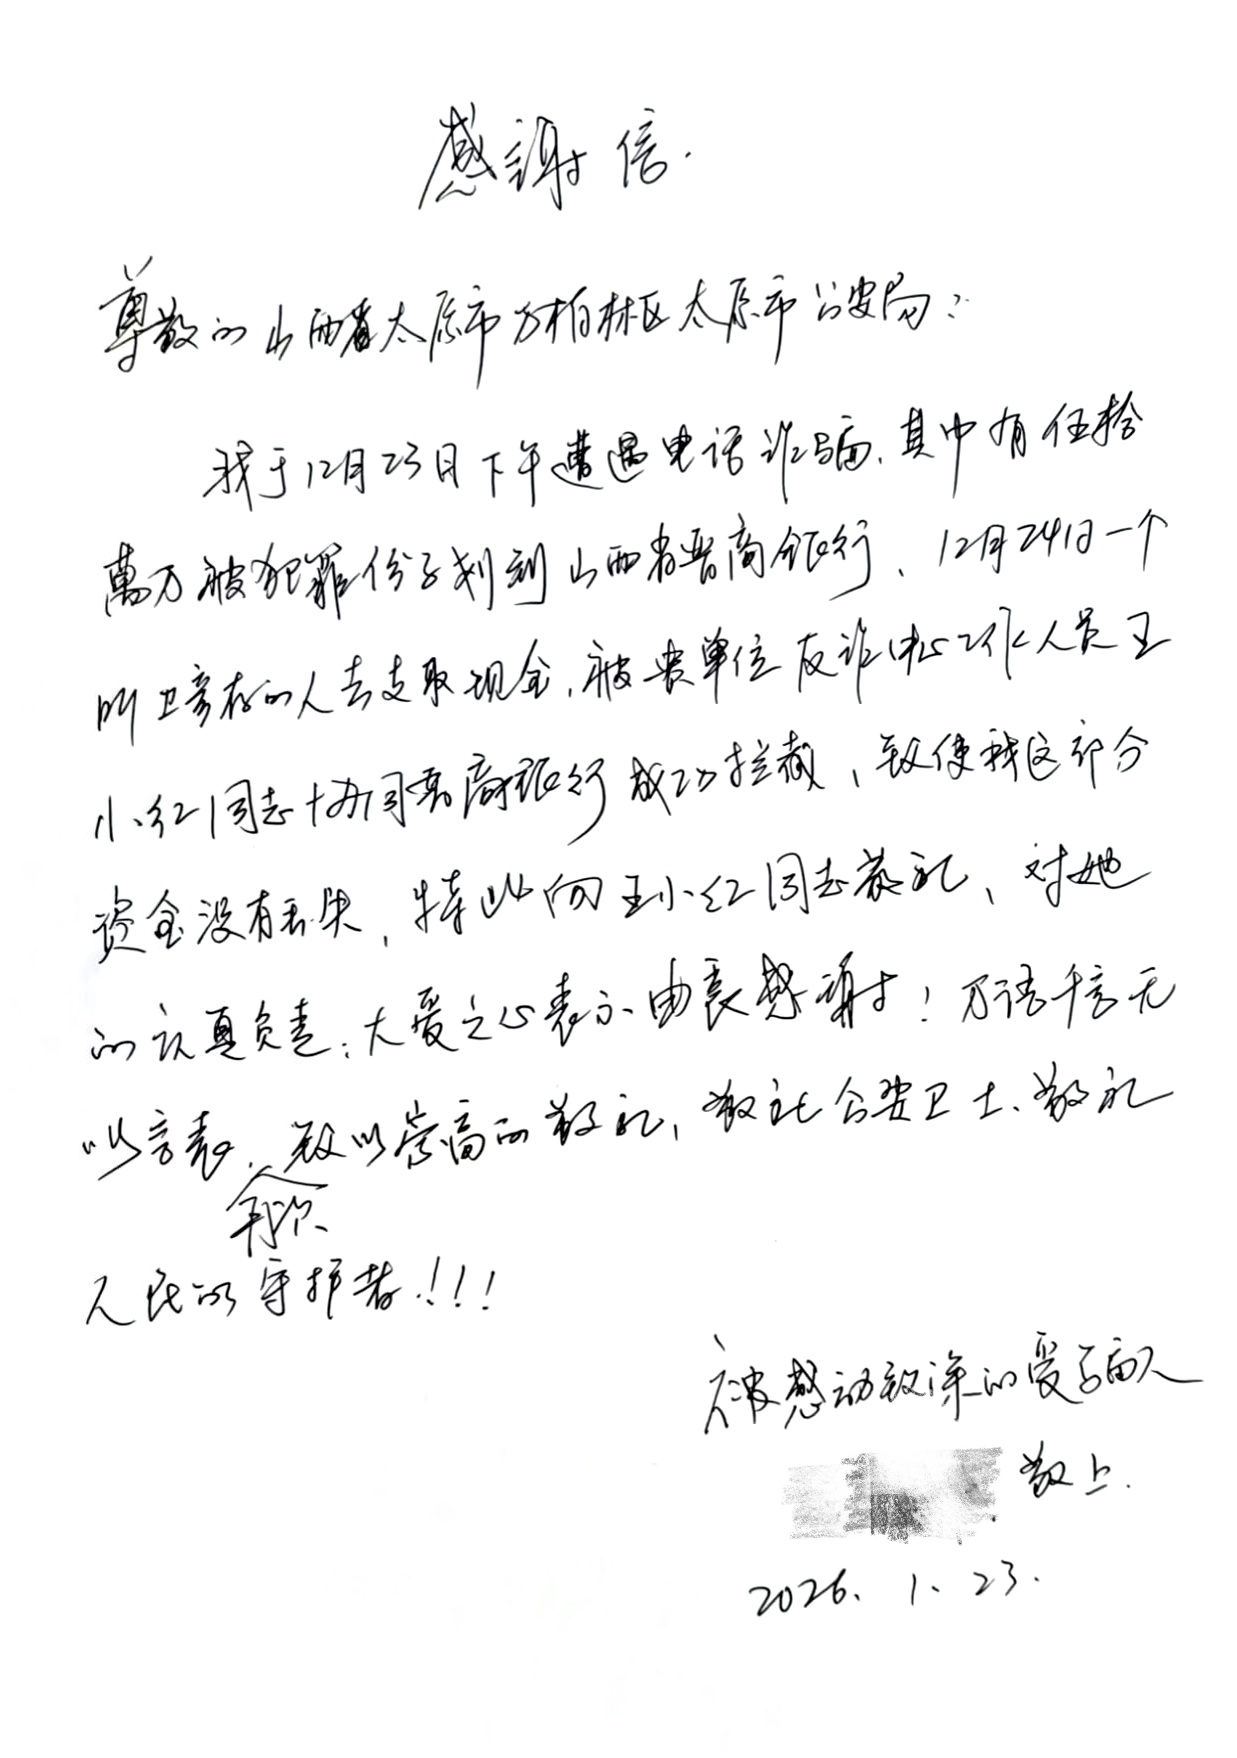 感謝信.
尊敬的山西省太原市万柏林区太原市公安局：
我于12月23日下午遭遇电话诈骗.其中有伍拾
萬万被犯罪份子划到山西省晋商銀行、12月24日一个
叫卫彦存的人去支取现金,被贵单位反诈中心工作人员王
小红同志协同晋商银行成功拦截,致使我这部分
资金没有丢失,特此向王小红同志敬礼、对她
的认真负责;大爱之心表示由衷感謝!万语千言无
以言表.再次致以崇高的敬礼,敬礼公安卫士、敬礼
人民的守护者!!!
被感动致深的受骗人
敬上.
2026.1.23.